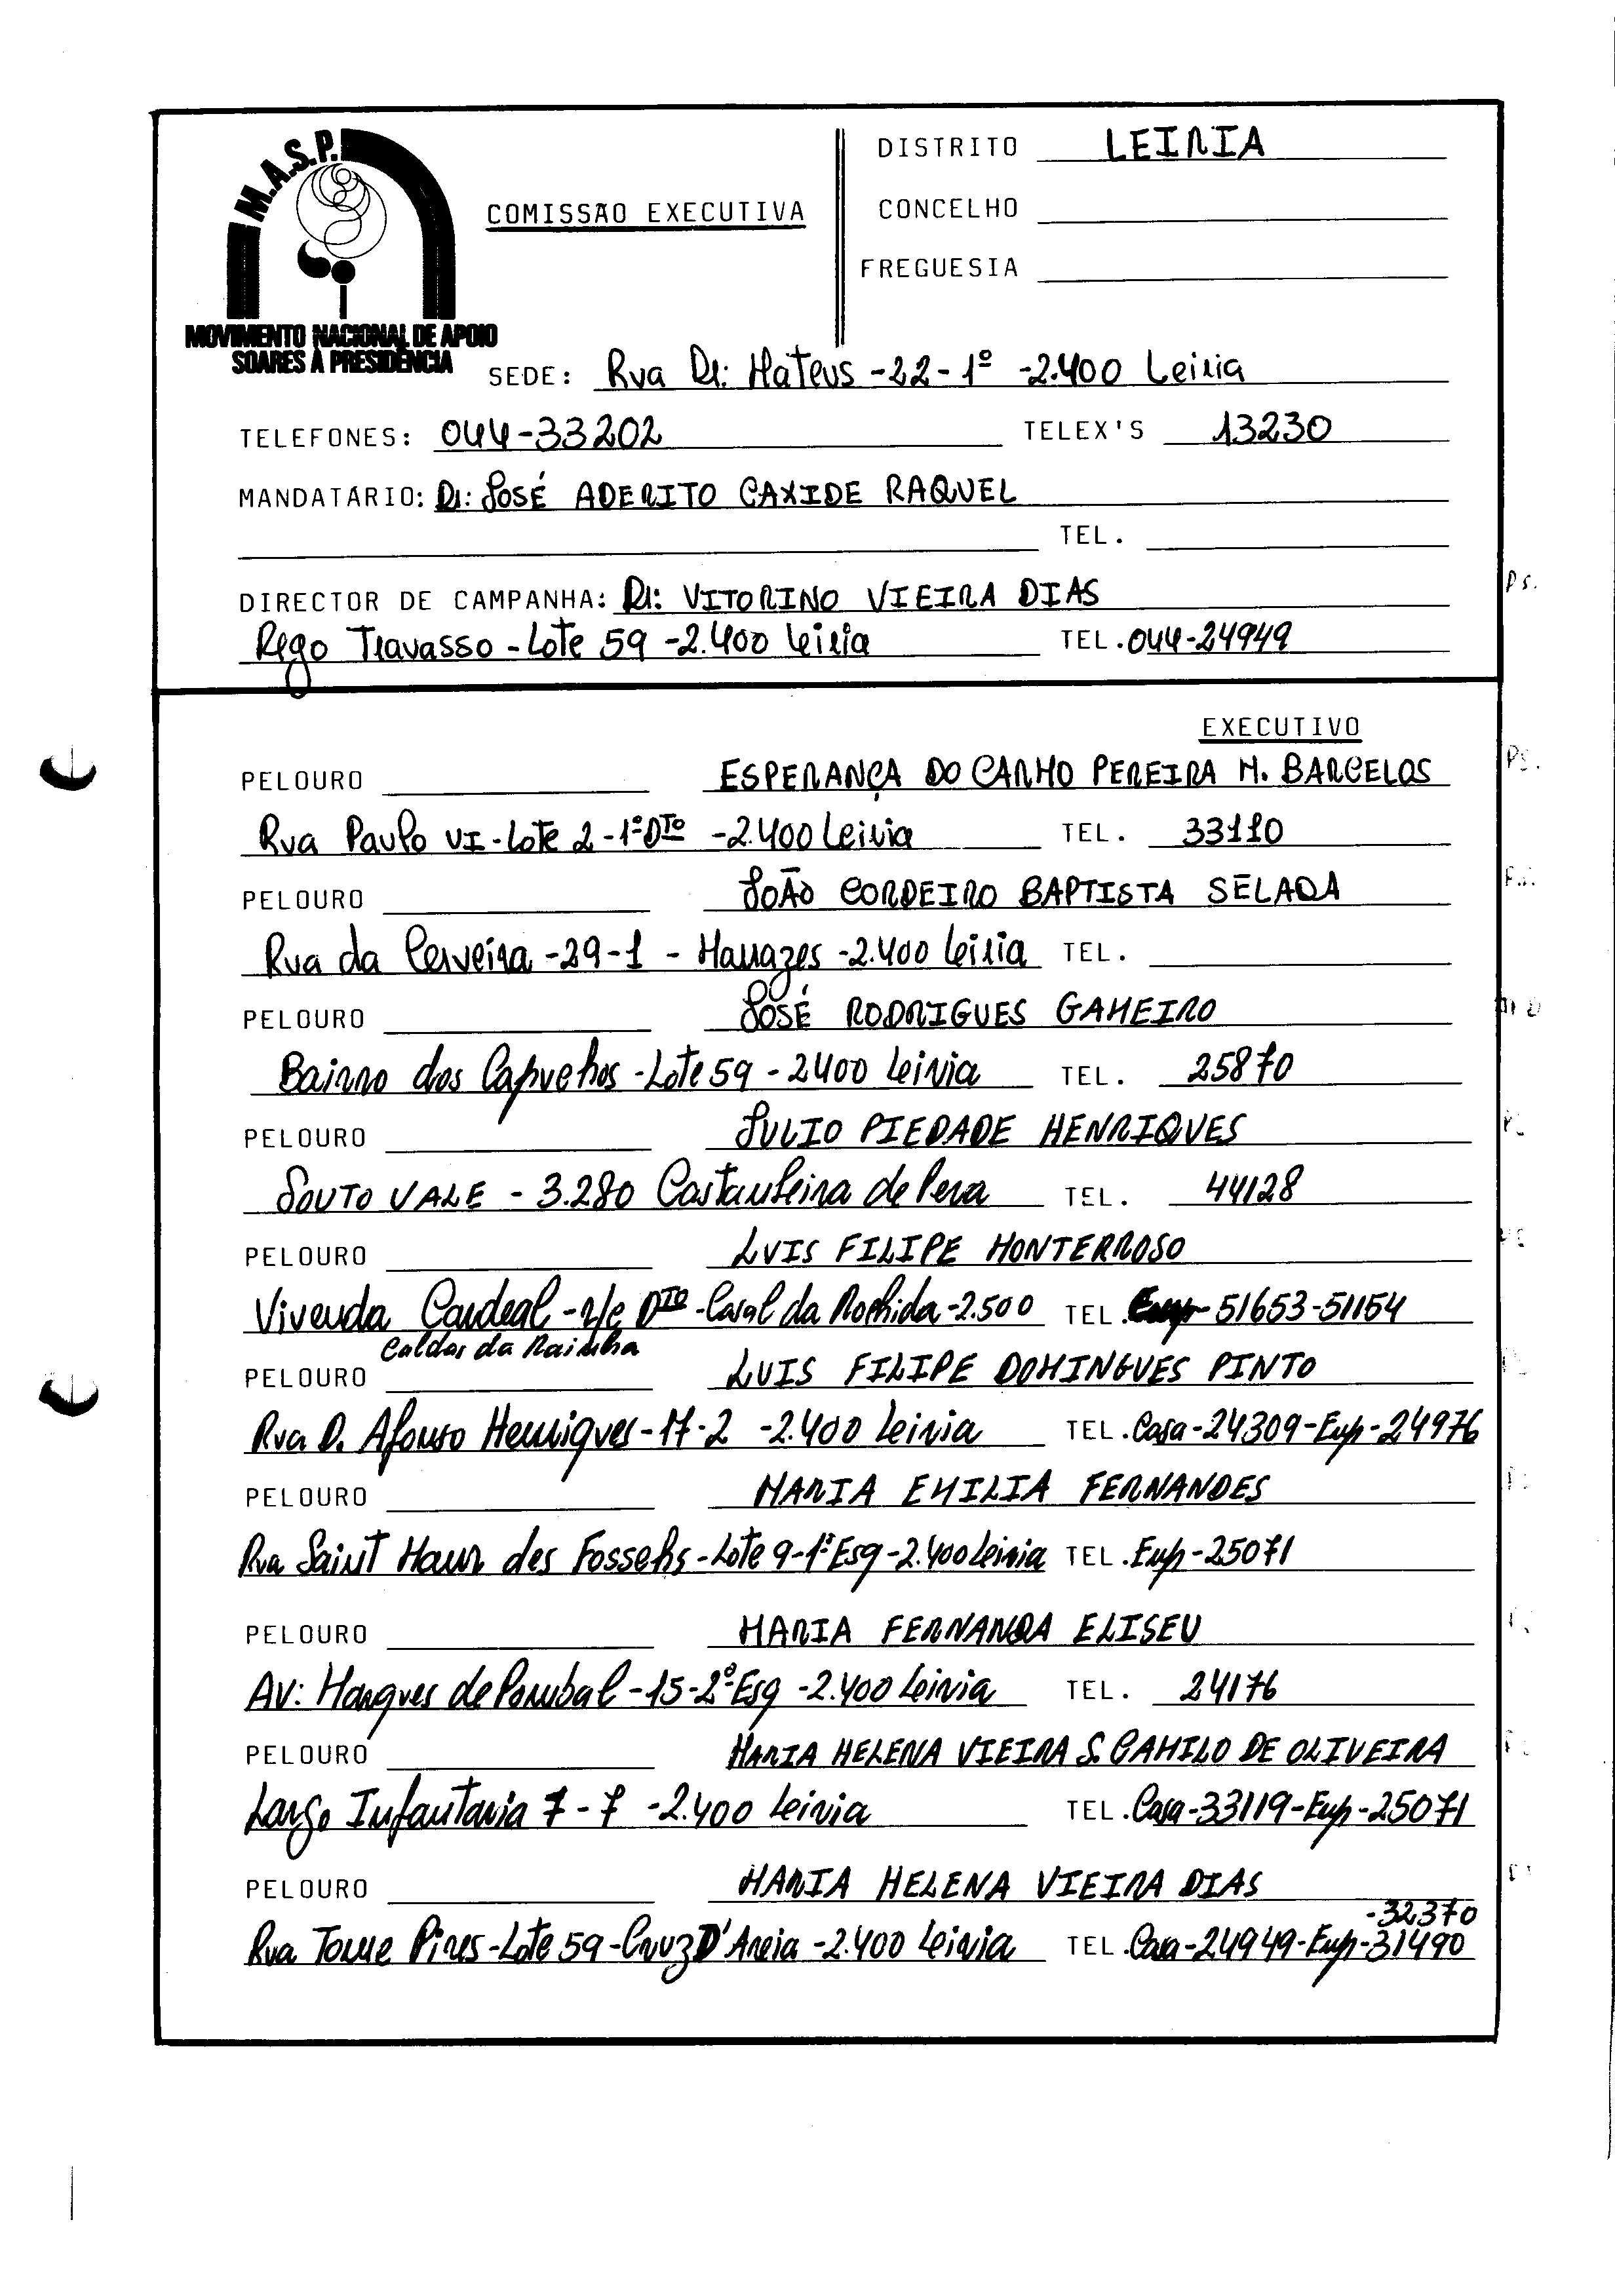 M.A.S.P.
MOVIMENTO NACIONAL DE APOIO
SOARES À PRESIDÊNCIA
COMISSÃO EXECUTIVA
DISTRITO LEIRIA
CONCELHO
FREGUESIA
SEDE: Rua Dr: Mateus -22-1º -2.400 Leiria
TELEFONES: 044-33202 TELEX'S 13230
MANDATÁRIO: Dr: JOSÉ ADERITO CAXIDE RAQUEL
TEL.
DIRECTOR DE CAMPANHA: Dr: VITORINO VIEIRA DIAS
Rego Travasso - Lote 59 -2.400 Leiria TEL. 044-24949
EXECUTIVO
PELOURO ESPERANÇA DO CARMO PEREIRA M. BARCELOS
Rua Paulo VI - Lote 2 - 1º DTO -2.400 Leiria TEL. 33110
PELOURO JOÃO CORDEIRO BAPTISTA SELADA
Rua da Cerveira -29-1 - Marrazes -2.400 Leiria TEL.
PELOURO JOSÉ RODRIGUES GAMEIRO
Bairro dos Capuchos - Lote 59 - 2400 Leiria TEL. 25870
PELOURO JULIO PIEDADE HENRIQUES
SOUTO VALE - 3.280 Castanheira de Pera TEL. 44128
PELOURO LUIS FILIPE MONTERROSO
Vivenda Cardeal - r/c DTO - Casal da Rochida -2.500 TEL. 51653-51154
Caldas da Rainha
PELOURO LUIS FILIPE DOMINGUES PINTO
Rua D. Afonso Henriques -17-2 -2.400 Leiria TEL. Casa-24309-Emp-24976
PELOURO MARIA EMILIA FERNANDES
Rua Saint Maur des Fossehs - Lote 9-1º Esq -2.400 Leiria TEL. Emp-25071
PELOURO MARIA FERNANDA ELISEU
AV: Marques de Pombal -15-2º Esq -2.400 Leiria TEL. 24176
PELOURO MARIA HELENA VIEIRA S. CAMILO DE OLIVEIRA
Largo Infantaria 7 - 7 -2.400 Leiria TEL. Casa-33119-Emp-25071
PELOURO MARIA HELENA VIEIRA DIAS
-32370
Rua Tome Pires - Lote 59 - Cruz D'Areia -2.400 Leiria TEL. Casa-24949-Emp-31490